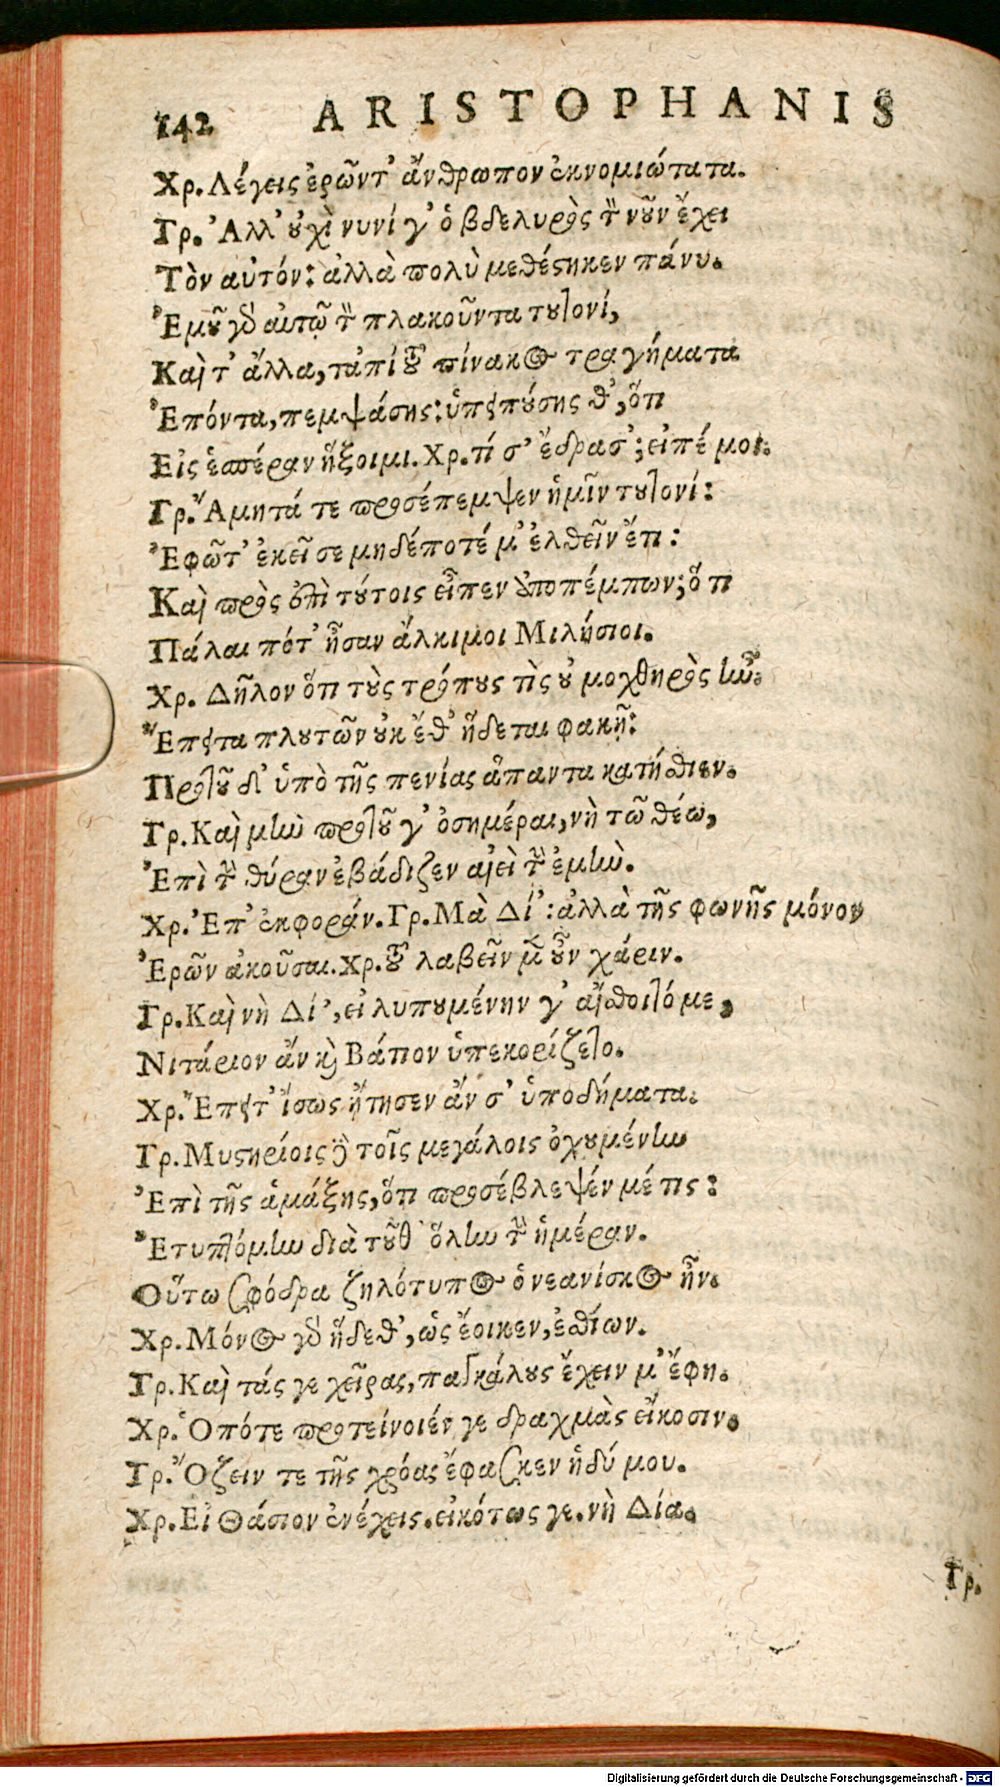 142 ARISTOPHANIS
Χρ. Λέγεις ἐρῶντ' ἄνθρωπον ἐκνομιώτατα.
Γρ. Ἀλλ' οὐχὶ νυνί γ' ὁ βδελυρὸς τὸν νοῦν ἔχει
Τὸν αὐτόν: ἀλλὰ πολὺ μεθέστηκεν πάνυ.
Ἐμοῦ γὰρ αὐτῷ τὸν πλακοῦντα τουτονί,
Καὶ τ' ἄλλα, τἀπὶ τοῦ πίνακος τραγήματα
Ἐπόντα, πεμψάσης: ὑπειπούσης θ', ὅτι
Εἰς ἑσπέραν ἥξοιμι. Χρ. τί σ' ἔδρασ'; εἰπέ μοι.
Γρ. Ἄμητά τε προσέπεμψεν ἡμῖν τουτονί:
Ἐφῶτ' ἐκεῖσε μηδέποτέ μ' ἐλθεῖν ἔτι:
Καὶ πρὸς ἐπὶ τούτοις εἶπεν ἀποπέμπων; ὅτι
Πάλαι πότ' ἦσαν ἄλκιμοι Μιλήσιοι.
Χρ. Δῆλον ὅτι τοὺς τρόπους τὶς οὐ μοχθηρὸς ἦν.
Ἔπειτα πλουτῶν οὐκ ἔθ' ἥδεται φακῇ:
Πρὸ τοῦ δ' ὑπὸ τῆς πενίας ἅπαντα κατήσθιεν.
Γρ. Καὶ μὴν πρὸ τοῦ γ' ὁσημέραι, νὴ τὼ θέω,
Ἐπὶ τὴν θύραν ἐβάδιζεν αἰεὶ τὴν ἐμήν.
Χρ. Ἐπ' ἐκφοράν. Γρ. Μὰ Δί': ἀλλὰ τῆς φωνῆς μόνον
Ἐρῶν ἀκοῦσαι. Χρ. τοῦ λαβεῖν μὲν οὖν χάριν.
Γρ. Καὶ νὴ Δί', εἰ λυπουμένην γ' αἴσθοιτό με,
Νιτάριον ἂν καὶ Βάτιον ὑπεκορίζετο.
Χρ. Ἔπειτ' ἴσως ᾔτησεν ἄν σ' ὑποδήματα.
Γρ. Μυστηρίοις δὲ τοῖς μεγάλοις ὀχουμένην
Ἐπὶ τῆς ἁμάξης, ὅτι προσέβλεψέν μέ τις:
Ἐτυπτόμην διὰ τοῦθ' ὅλην τὴν ἡμέραν.
Οὕτω σφόδρα ζηλότυπος ὁ νεανίσκος ἦν.
Χρ. Μόνος γὰρ ἥδεθ', ὡς ἔοικεν, ἐσθίων.
Γρ. Καὶ τάς γε χεῖρας, παγκάλους ἔχειν μ' ἔφη.
Χρ. Ὁπότε προτείνοιέν γε δραχμὰς εἴκοσιν.
Γρ. Ὄζειν τε τῆς χρόας ἔφασκεν ἡδύ μου.
Χρ. Εἰ Θάσιον ἐνέχεις. εἰκότως γε. νὴ Δία.
Γρ.
Digitalisierung gefördert durch die Deutsche Forschungsgemeinschaft - DFG